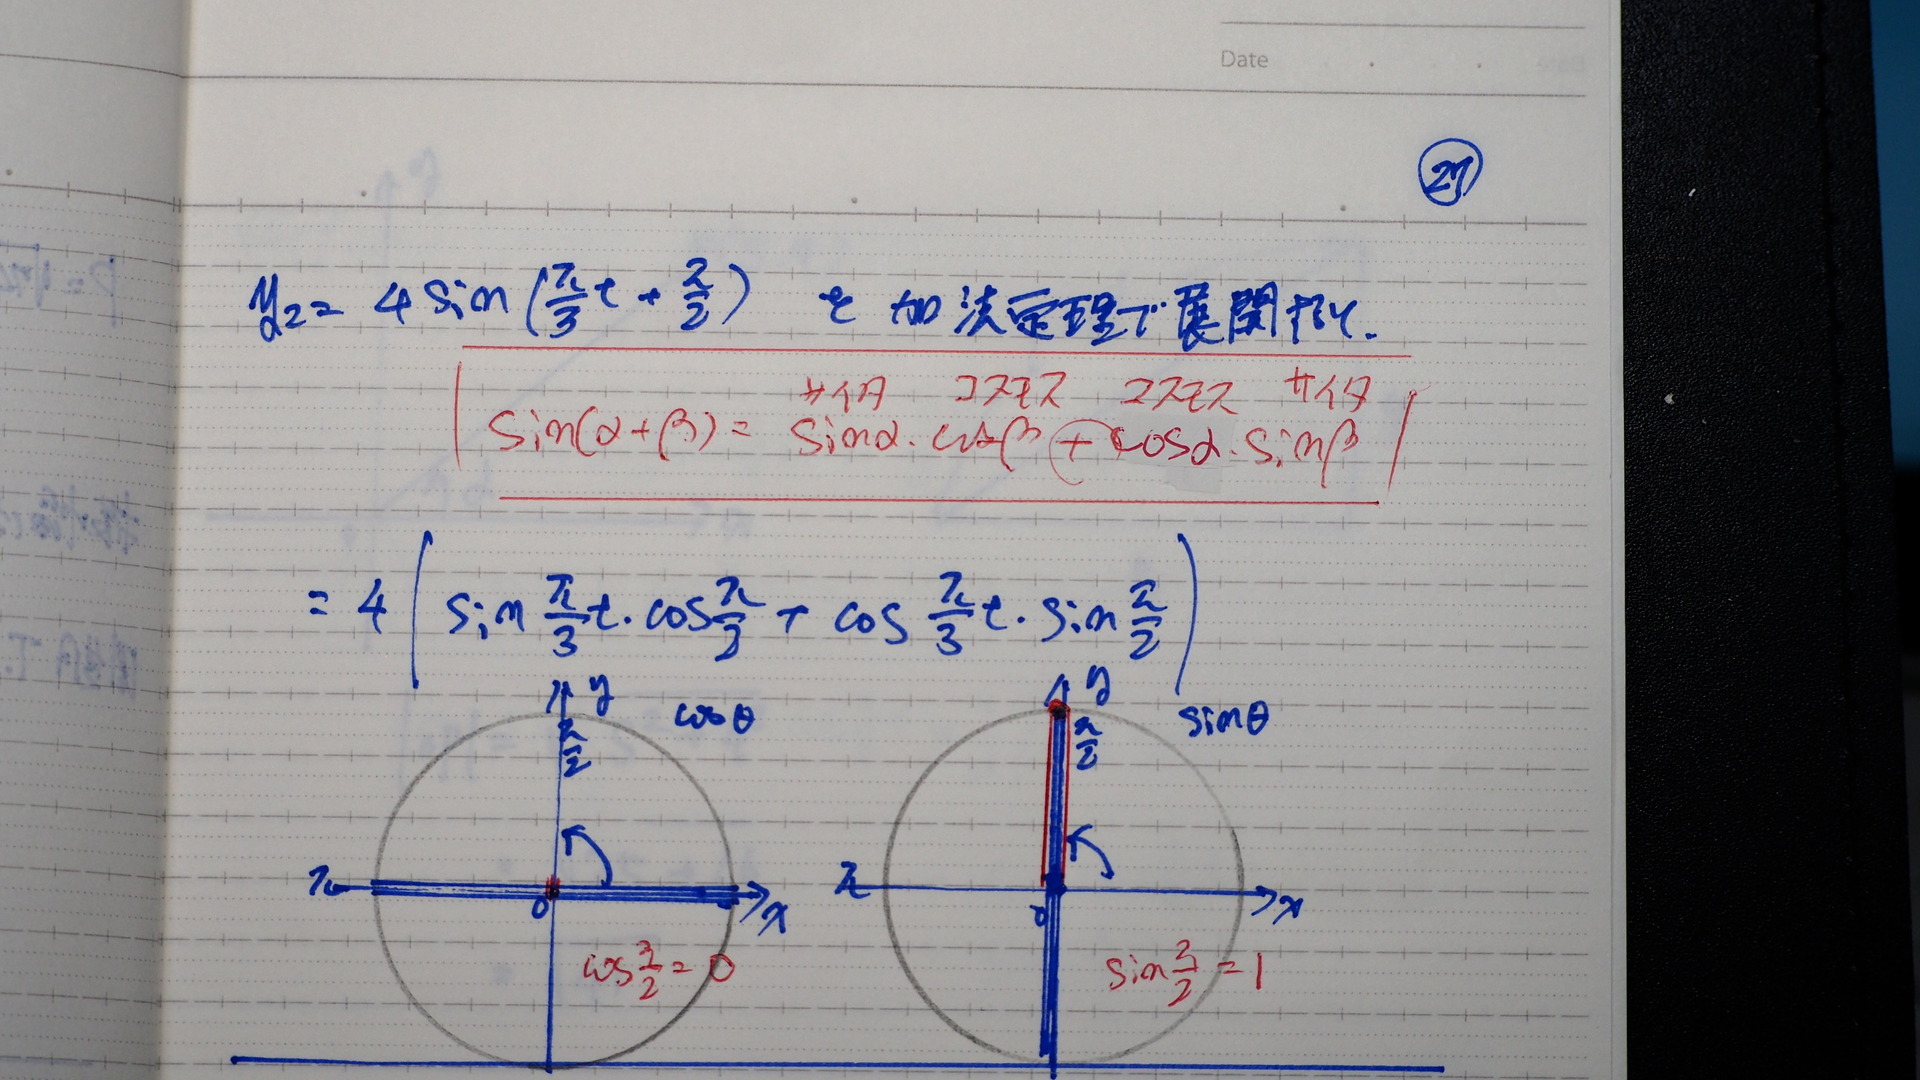 Date
27
y₂ = 4 sin(π/3 t + π/2) を 加法定理で展開すれば.
サイタ コスモス コスモス サイタ
sin(α+β) = sinα・cosβ + cosα・sinβ
= 4 ( sin π/3 t・cos π/2 + cos π/3 t・sin π/2 )
y cosθ y sinθ
π/2 π/2
π 0 x π 0 x
cos π/2 = 0 sin π/2 = 1